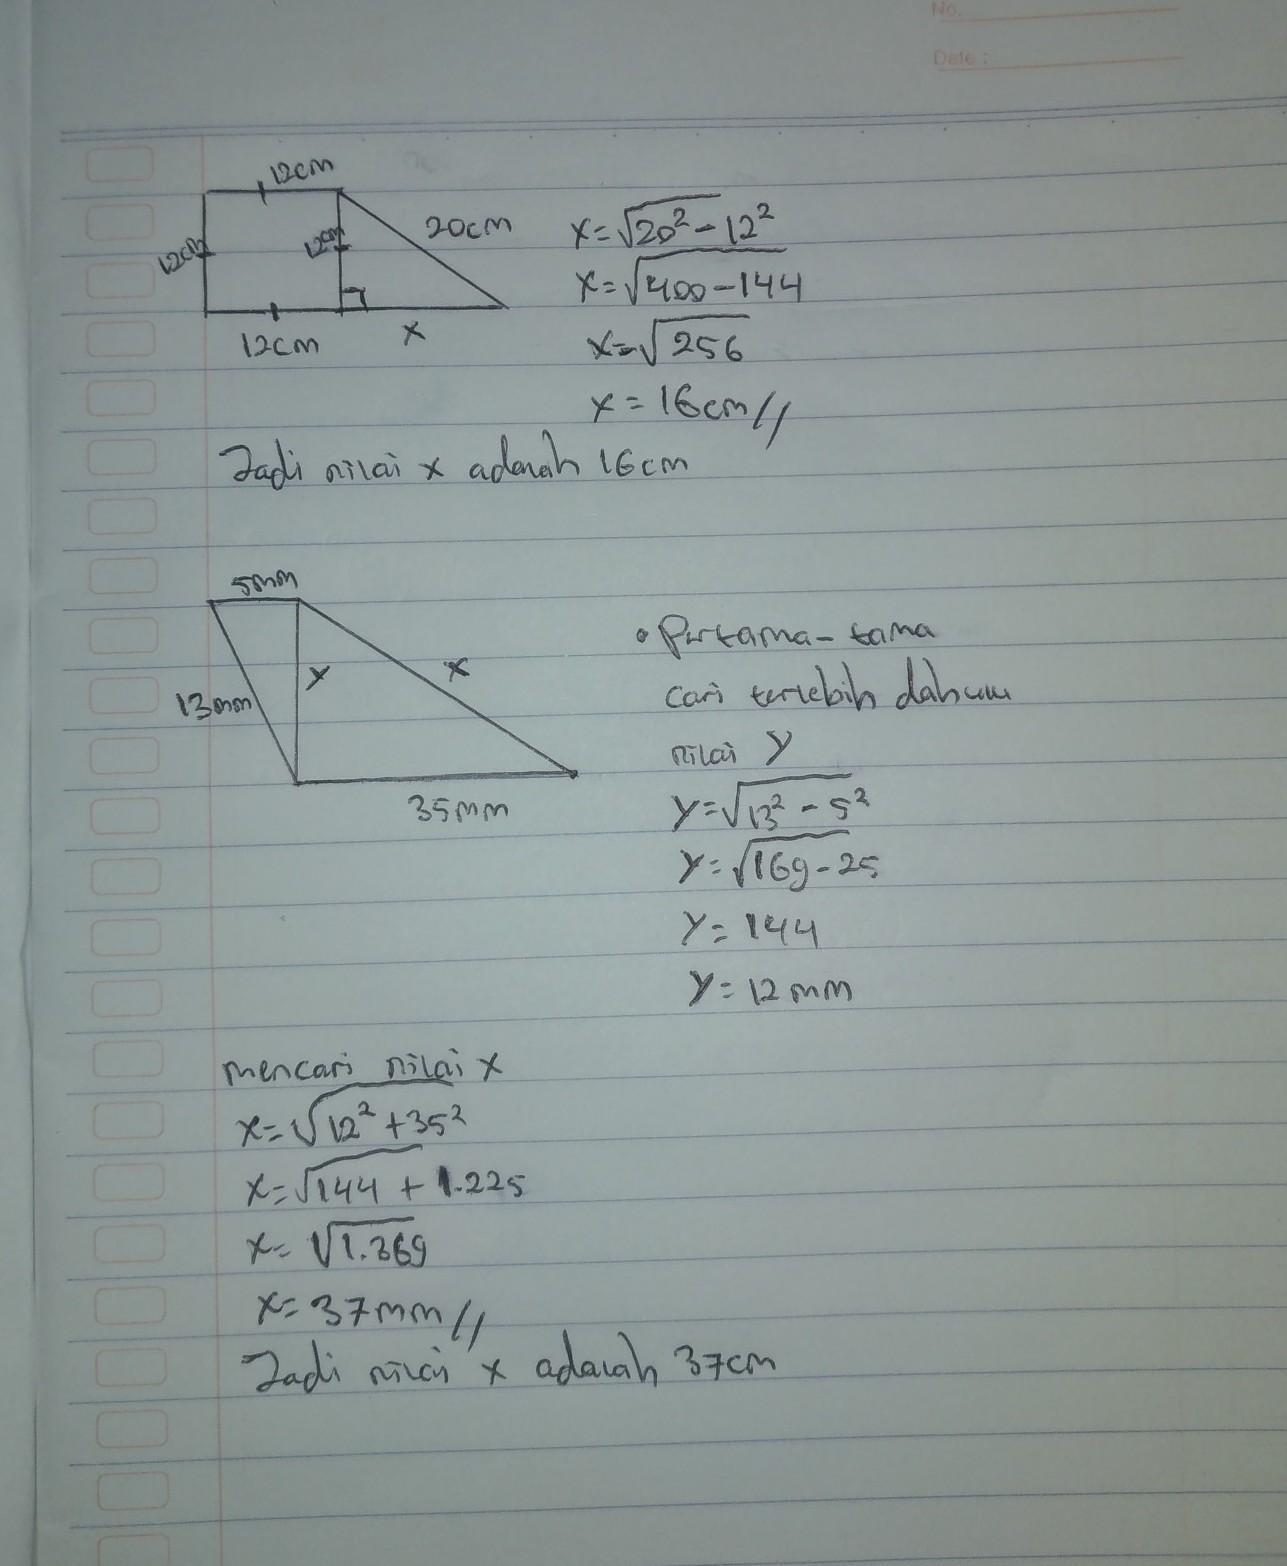 No.
Date :
12cm
12cm
12cm
20cm
12cm
x
x=√20²-12²
x=√400-144
x=√256
x=16cm//
Jadi nilai x adalah 16cm
5mm
y
x
13mm
35mm
• Pertama-tama
cari terlebih dahulu
nilai y
y=√13²-5²
y=√169-25
y=144
y=12mm
mencari nilai x
x=√12²+35²
x=√144+1.225
x=√1.369
x=37mm//
Jadi nilai x adalah 37cm